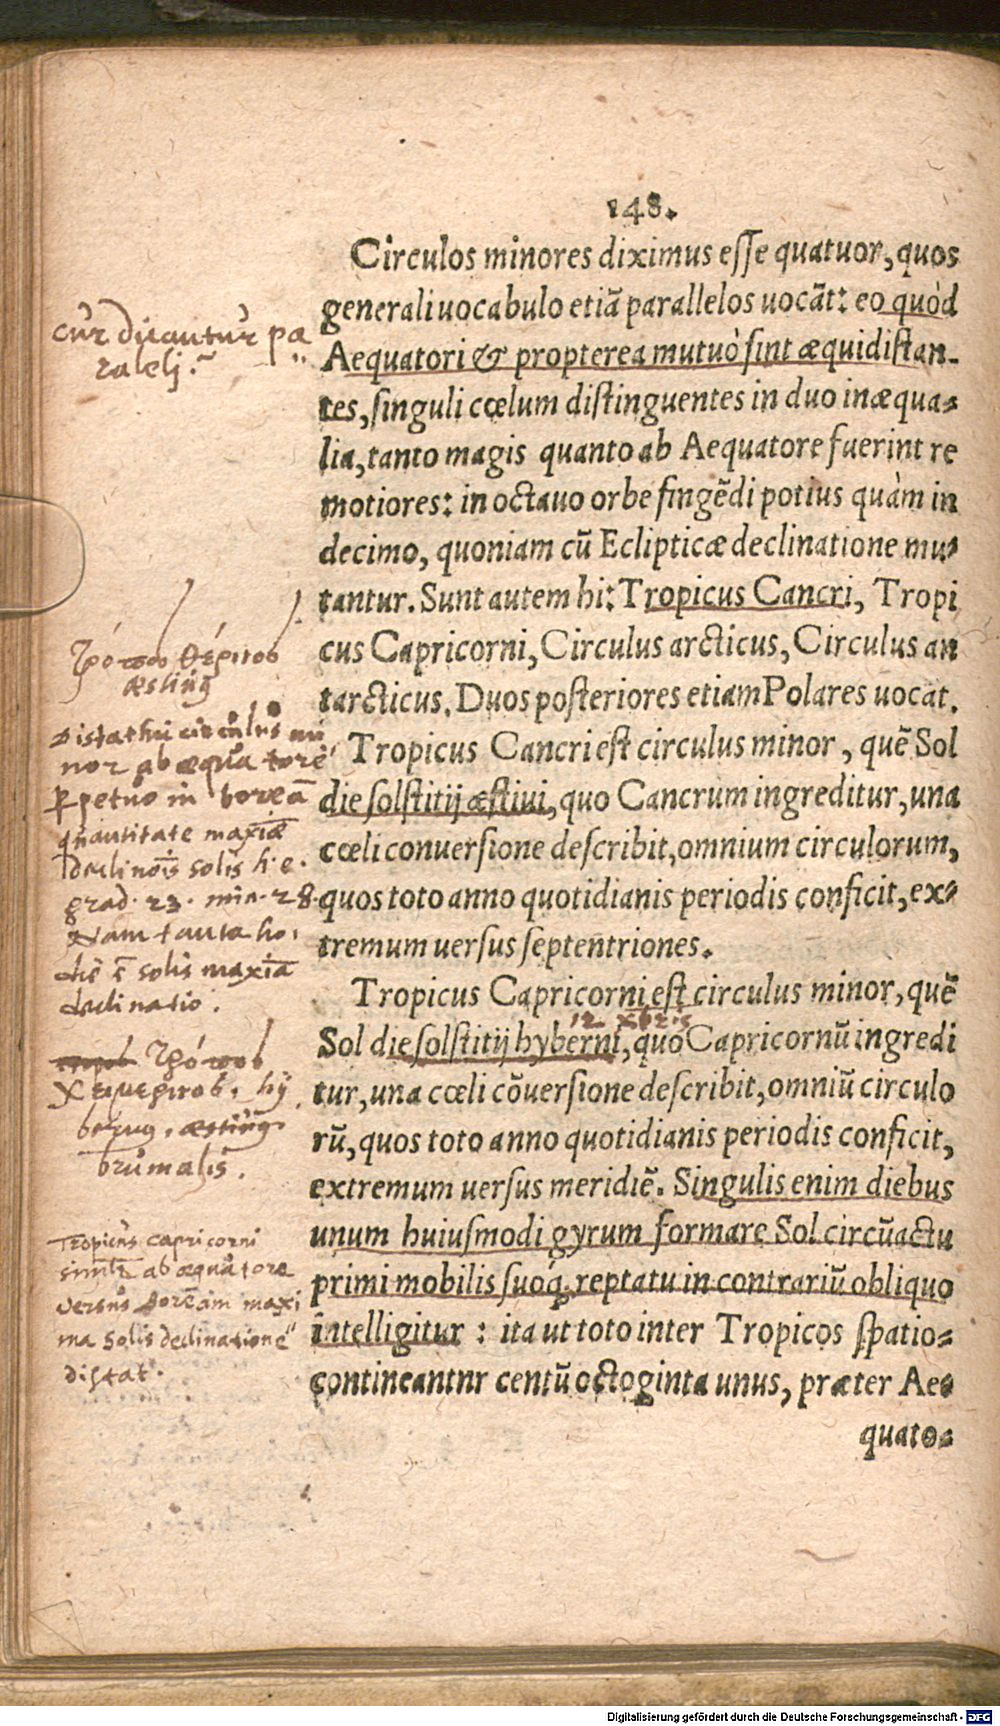 148.
Circulos minores diximus eſſe quatuor, quos
generali uocabulo etiã parallelos uocãt: eo quòd
Aequatori & propterea mutuò ſint æquidiſtan-
tes, ſinguli cœlum diſtinguentes in duo inæqua-
lia, tanto magis quanto ab Aequatore fuerint re
motiores: in octauo orbe fingẽdi potius quàm in
decimo, quoniam cũ Eclipticæ declinatione mu-
tantur. Sunt autem hi: Tropicus Cancri, Tropi
cus Capricorni, Circulus arcticus, Circulus an
tarcticus. Duos poſteriores etiam Polares uocãt.
Tropicus Cancri eſt circulus minor, quẽ Sol
die ſolſtitij æſtiui, quo Cancrum ingreditur, una
cœli conuerſione deſcribit, omnium circulorum,
quos toto anno quotidianis periodis conficit, ex-
tremum uerſus ſeptentriones.
Tropicus Capricorni eſt circulus minor, quẽ
12. Xbris
Sol die ſolſtitij hyberni, quo Capricornũ ingredi
tur, una cœli cõuerſione deſcribit, omniũ circulo
rũ, quos toto anno quotidianis periodis conficit,
extremum uerſus meridiẽ. Singulis enim diebus
unum huiuſmodi gyrum formare Sol circũactu
primi mobilis ſuoq́; reptatu in contrariũ obliquo
intelligitur: ita ut toto inter Tropicos ſpatio-
contineantnr centũ octoginta unus, præter Ae-
quato-
cur dicantur pa
ralelj?
τρόπος θέρινος
æstiuus
Distat hic circulus mi
nor ab æquatore
perpetuo in boreã
quantitate maxiæ
declinõis solis h. e.
grad. 23. min. 28.
Nam tanta ho.
die ẽ solis maxiã
declinatio.
τρόπος
χειμερινος. hÿ
bernus,
brumalis.
Tropicus capricorni
similr ab æquatore
versus boream maxi
ma Solis declinatione
distat.
Digitalisierung gefördert durch die Deutsche Forschungsgemeinschaft - DFG